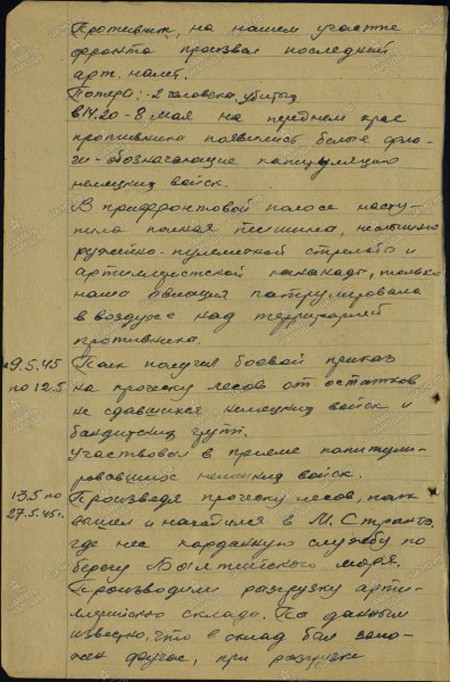 Противник, на нашем участке
фронта произвел последний
арт. налет.
Потери: - 2 человека убиты
в 14.20 - 8 мая на переднем крае
противника появились белые фла-
ги - обозначающие капитуляцию
немецких войск.
В прифронтовой полосе насту-
пила полная тишина, неслышно
ружейно-пулеметной стрельбы и
артиллерийской канонады, только
наша авиация патрулировала
в воздухе над территорией
противника.
с 9.5.45 Полк получил боевой приказ
по 12.5 на проческу лесов от остатков
не сдавшихся немецких войск и
бандитских групп.
Участвовал в приеме капитули-
ровавших немецких войск.
13.5 по Произведя проческу лесов, полк
27.5.45г. вышел и находился в М. Странто,
где нес карданную службу по
берегу Балтийского моря.
Производили разгрузку арти-
ллерийского склада. По данным
известно, что в склад был зало-
жен фугас, при разгрузке